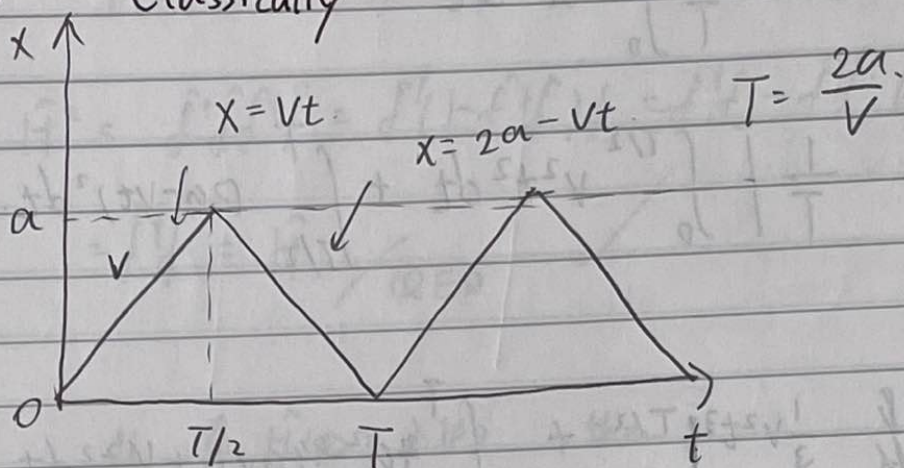 Classically
x
x = vt.
x = 2a - vt
T = 2a/v
a
v
0
T/2
T
t